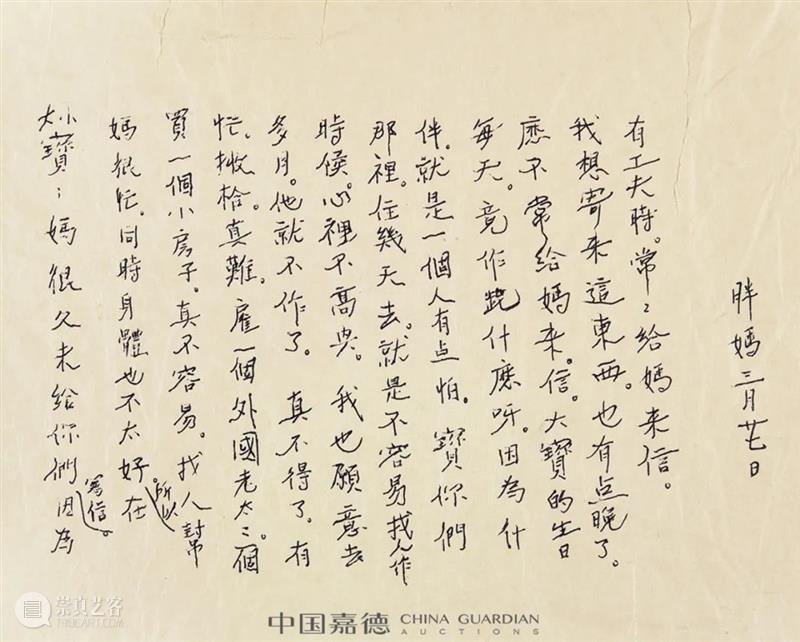 大小寶：媽很久未給你們寫信。因為
媽很忙。同時身體也不太好。所以在
買一個小房子。真不容易。找人幫
忙。收拾。真難。雇一個外國老太〻。個
多月。他就不作了。真不得了。有
時候。心裡不高兴。我也願意去
那裡。住幾天去。就是不容易找人作
伴。就是一個人有点怕。寶你們
每天。竟作些什麽呀。因為什
麽不常給媽来。信。大寶的生日
我想寄来這東西。也有点晚了。
有工夫時。常〻給媽来信。
胖媽三月廿七日
崇真艺客
TRUEART.COM
中国嘉德 CHINA GUARDIAN
AUCTIONS